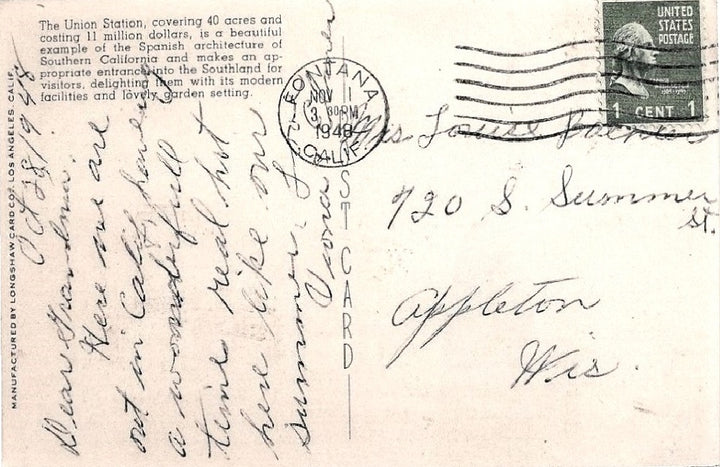 The Union Station, covering 40 acres and
costing 11 million dollars, is a beautiful
example of the Spanish architecture of
Southern California and makes an ap-
propriate entrance into the Southland for
visitors, delighting them with its modern
facilities and lovely garden setting.
MANUFACTURED BY LONGSHAW CARD CO., LOS ANGELES, CALIF.
Oct 28/948
Dear Grandma.
Here we are
out in Calif, having
a wonderfull
time real hot
here like our
summer.
POST CARD
FONTANA
NOV
3
30 PM
1948
CALIF.
UNITED
STATES
POSTAGE
1 CENT 1
Mrs Louise
720 S. Summer
St.
Appleton
Wis.